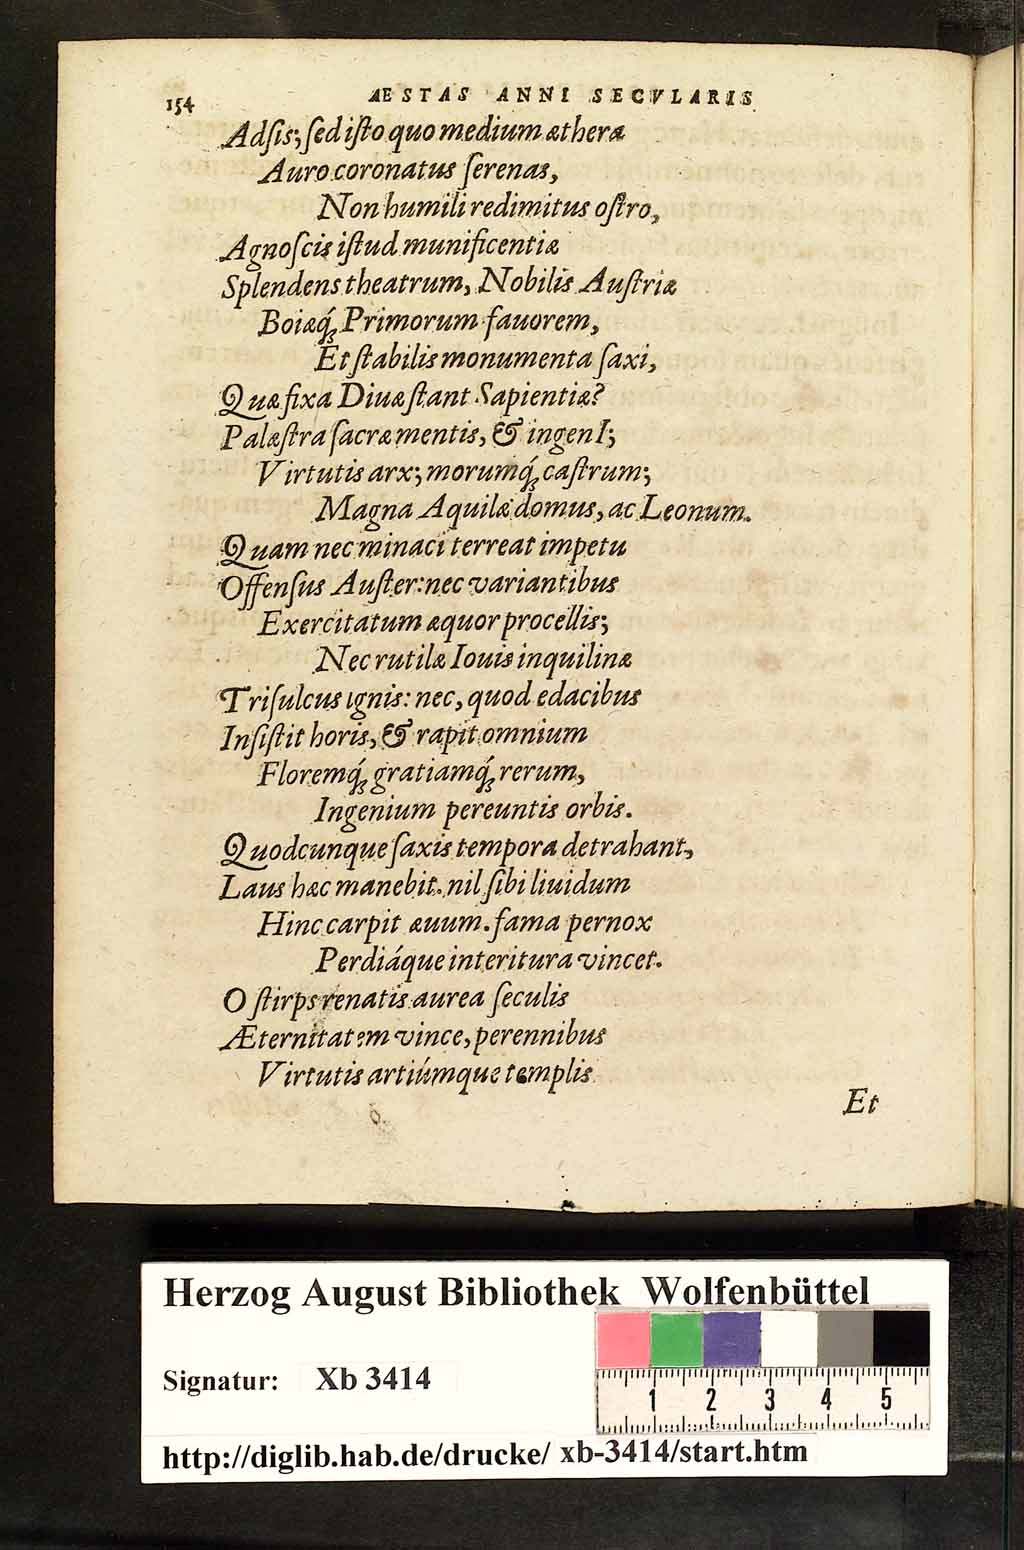 154 ÆSTAS ANNI SECVLARIS
Adſis; ſed iſto quo medium æthera
Auro coronatus ſerenas,
Non humili redimitus oſtro,
Agnoſcis iſtud munificentiæ
Splendens theatrum, Nobilis Auſtriæ
Boiæq́; Primorum fauorem,
Et ſtabilis monumenta ſaxi,
Quæ fixa Diuæ ſtant Sapientiæ?
Palæſtra ſacræ mentis, & ingenI;
Virtutis arx; morumq́; caſtrum;
Magna Aquilæ domus, ac Leonum.
Quam nec minaci terreat impetu
Offenſus Auſter: nec variantibus
Exercitatum æquor procellis;
Nec rutilæ Iouis inquilinæ
Triſulcus ignis: nec, quod edacibus
Inſiſtit horis, & rapit omnium
Floremq́; gratiamq́; rerum,
Ingenium pereuntis orbis.
Quodcunque ſaxis tempora detrahant,
Laus hæc manebit. nil ſibi liuidum
Hinc carpit æuum. fama pernox
Perdiáque interitura vincet.
O ſtirps renatis aurea ſeculis
Æternitatem vince, perennibus
Virtutis artiúmque templis
Et
Herzog August Bibliothek Wolfenbüttel
Signatur: Xb 3414
1 2 3 4 5
http://diglib.hab.de/drucke/ xb-3414/start.htm